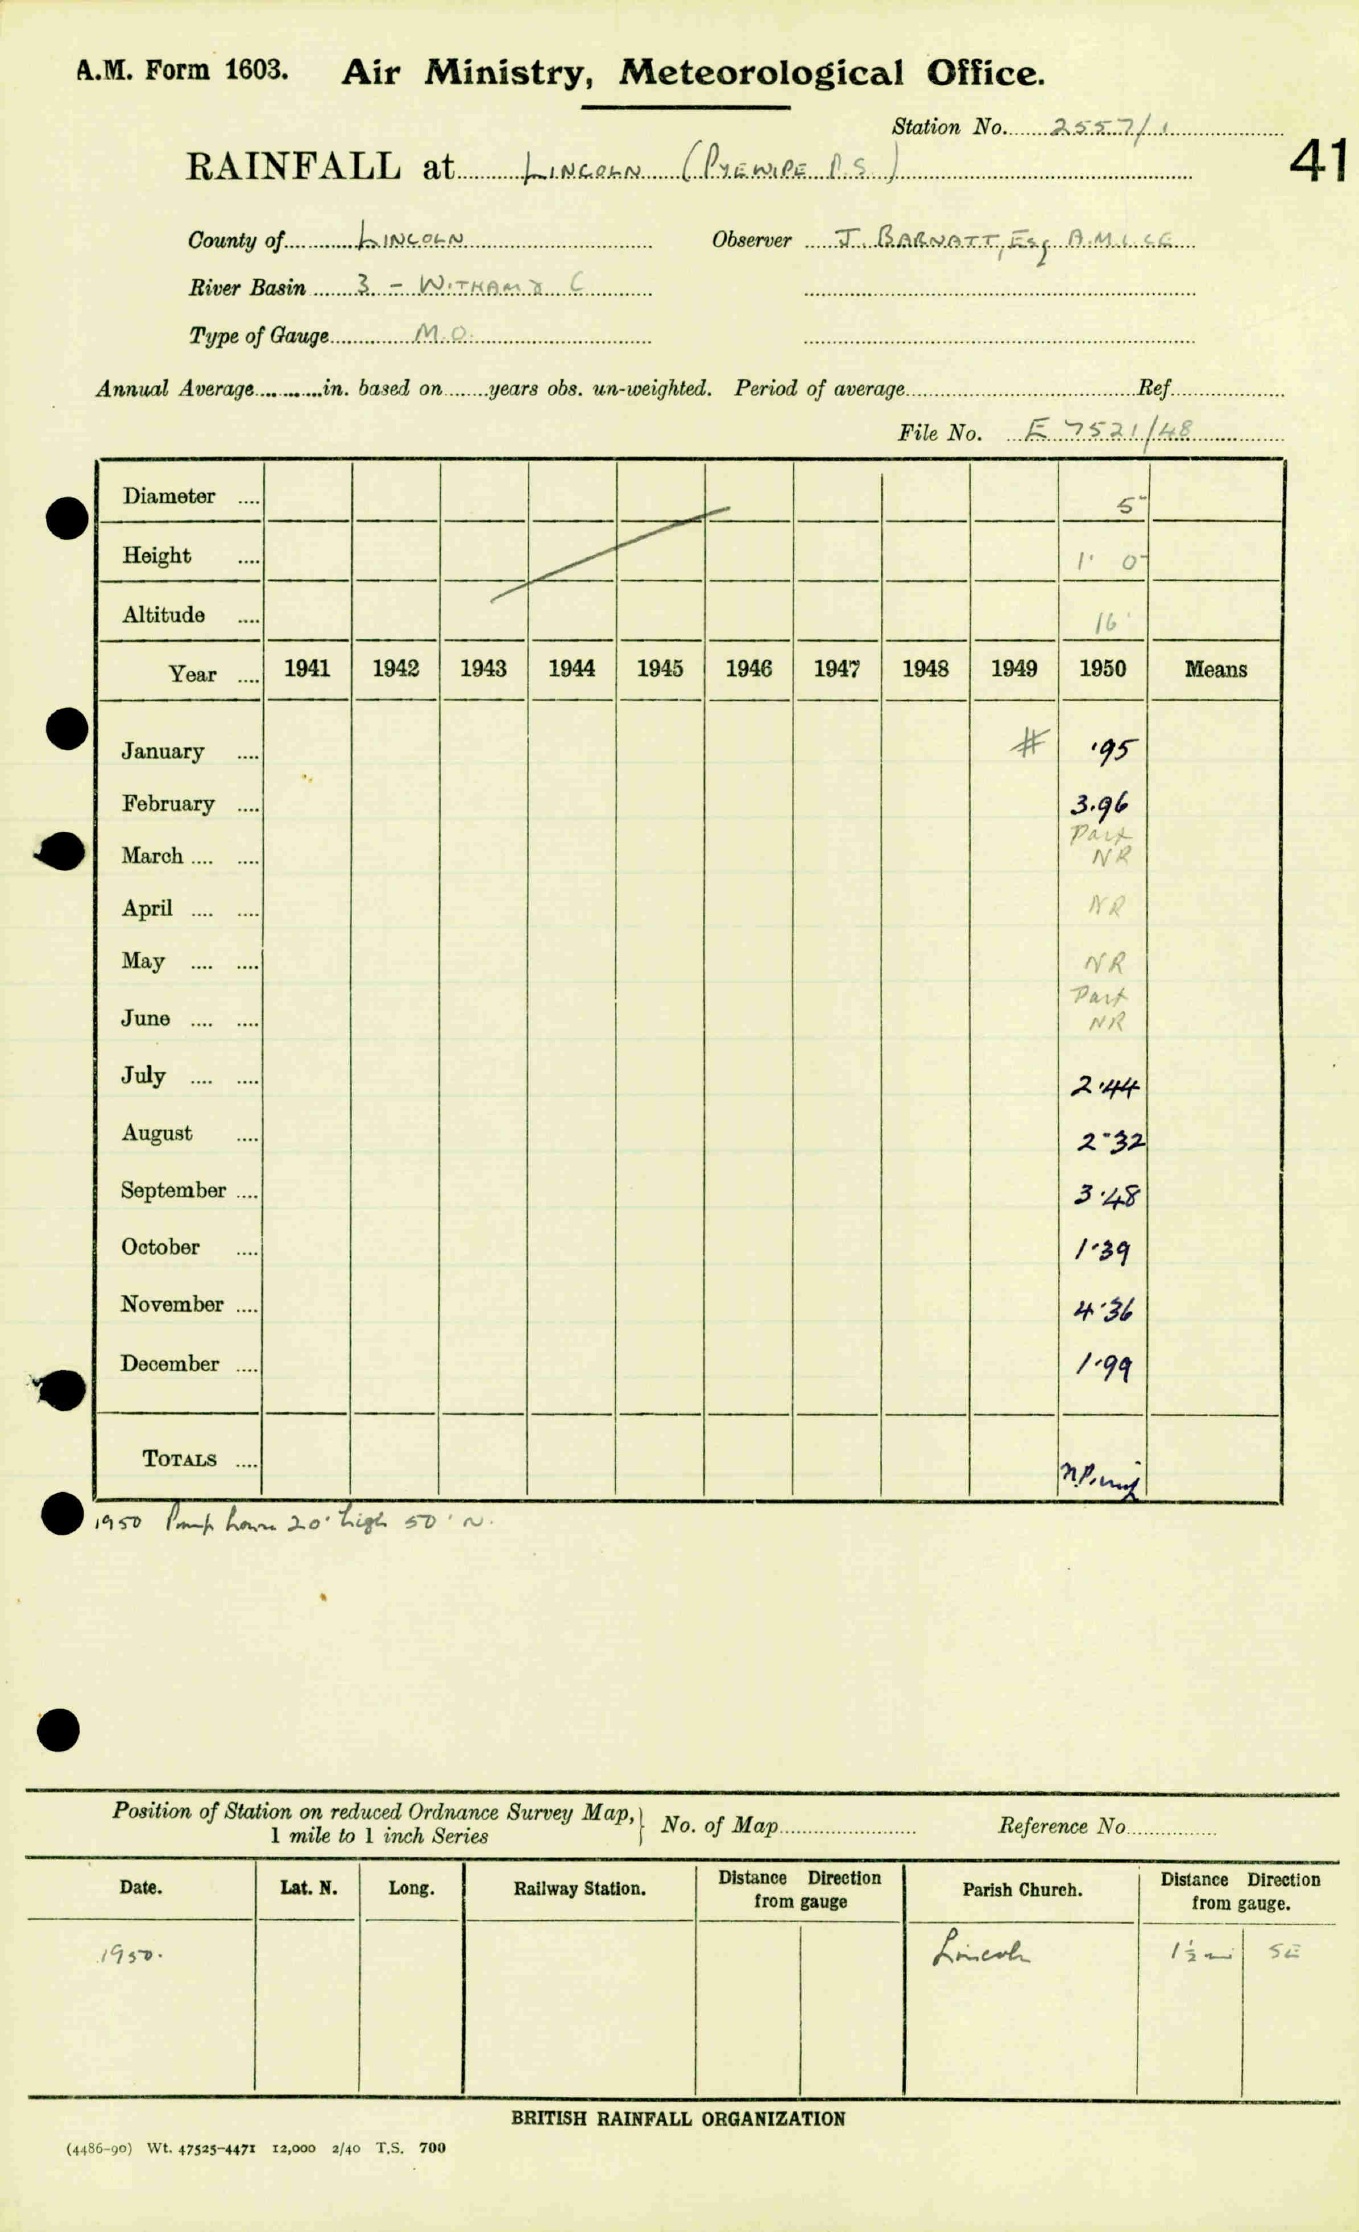 A.M. Form 1603. Air Ministry, Meteorological Office.
Station No. 2557/1
41
RAINFALL at LINCOLN (PYEWIPE P.S.)
County of LINCOLN Observer J. BARNATT, Esq A.M.I.CE
River Basin 3 - WITHAM & C
Type of Gauge M.O.
Annual Average in. based on years obs. un-weighted. Period of average Ref
File No. E 7521/48
Diameter 5"
Height 1' 0"
Altitude 16'
Year 1941 1942 1943 1944 1945 1946 1947 1948 1949 1950 Means
January # ·95
February 3·96
Part
March NR
April NR
May NR
Part
June NR
July 2·44
August 2·32
September 3·48
October 1·39
November 4·36
December 1·99
TOTALS
1950 Pump house 20' high 50' N.
Position of Station on reduced Ordnance Survey Map, 1 mile to 1 inch Series } No. of Map Reference No
Date. Lat. N. Long. Railway Station. Distance Direction from gauge Parish Church. Distance Direction from gauge.
1950. Lincoln 1½ mi SE
BRITISH RAINFALL ORGANIZATION
(4486-90) Wt. 47525-4471 12,000 2/40 T.S. 700